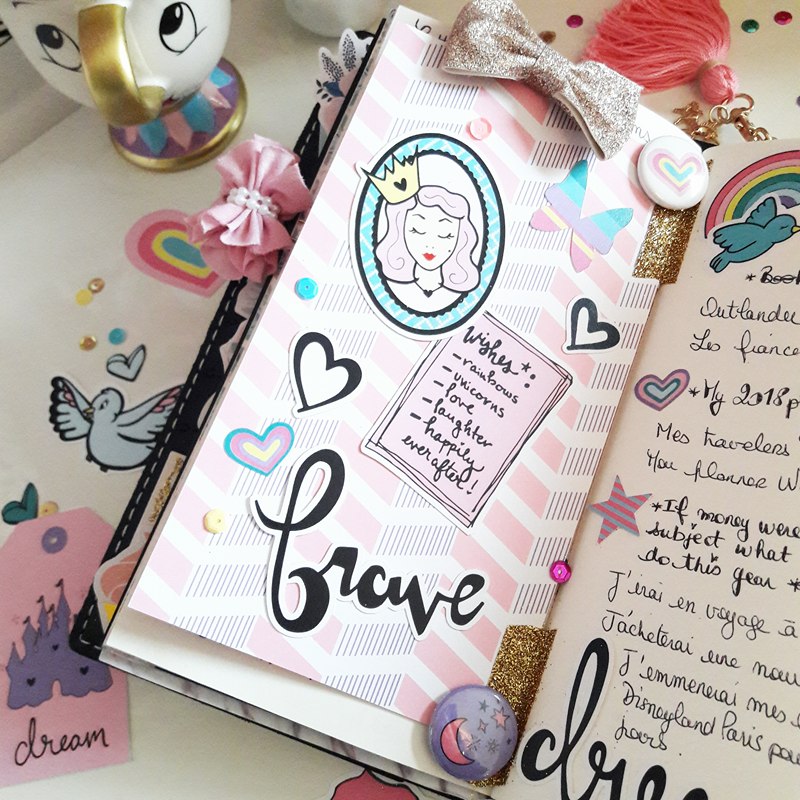 Wishes*:
- rainbows
- unicorns
- love
- laughter
- happily
ever after!
brave
dream
Outlander
Les fiancé
*My 2018 p
Mes travelers
Mon planner W
*If money were
subject what
do this year *
J'irai en voyage à
J'achèterai une nou
J'emmenerai mes e
Disneyland Paris pou
jours.
dre